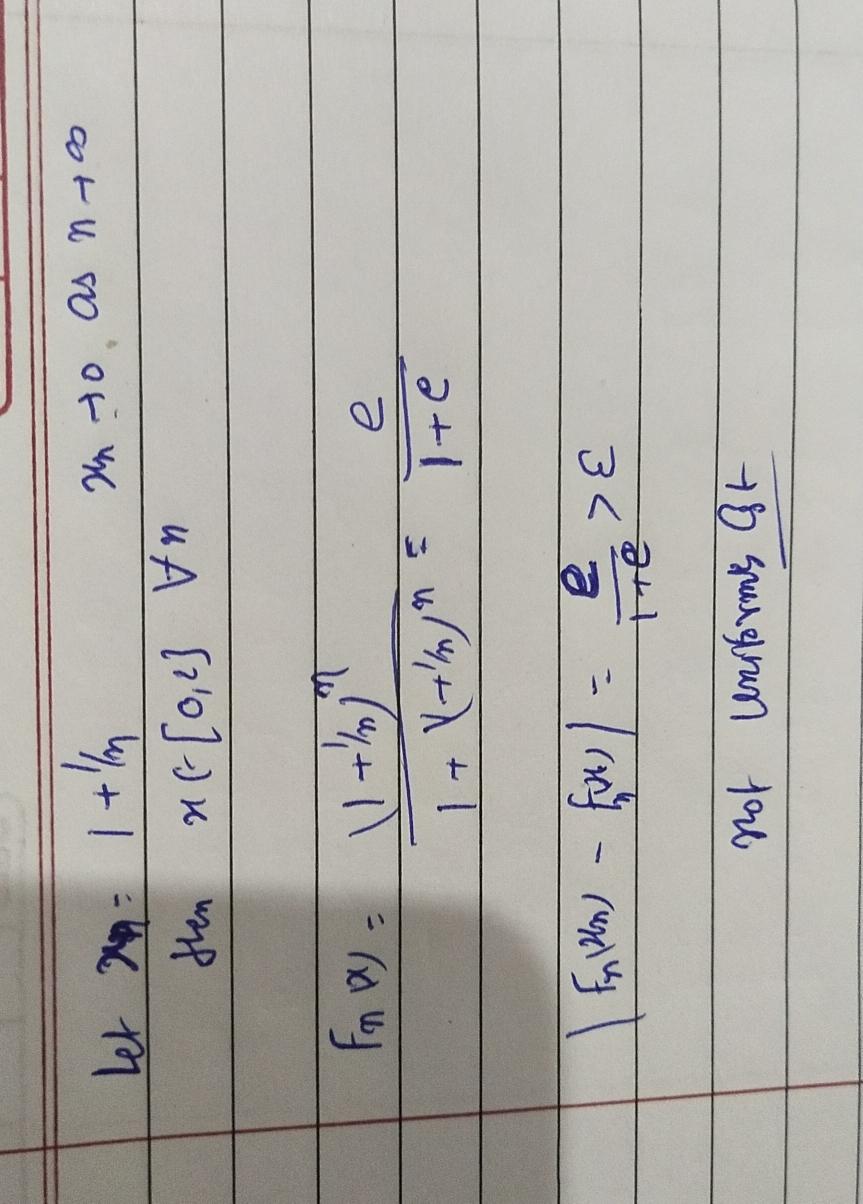 Let xn = 1+1/n xn →0 as n→∞
then x∈[0,2] ∀n
Fn(x) = (1+1/n)^n / 1+(1+1/n)^n = e / 1+e
|fn(xn) - fn(x)| = e / 1+e > ε
not uniform